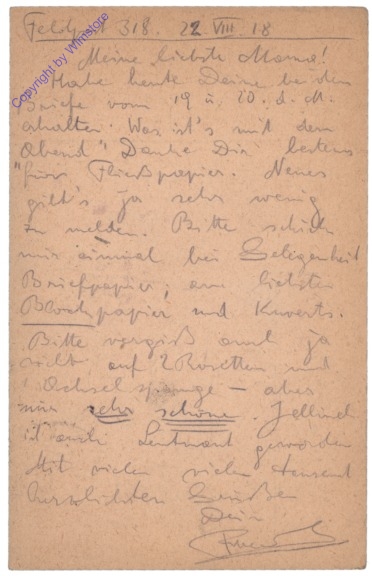 Feldpost 318. 22 VIII 18
Meine liebste Mama!
Habe heute Deine beiden
Briefe vom 19 u. 20. d. M.
erhalten. Was ist's mit dem
"Abend"? Danke Dir bestens
für's Fließpapier. Neues
gibt's ja sehr wenig
zu melden. Bitte schick
mir einmal bei Gelegenheit
Briefpapier, am liebsten
Blockpapier und Kuverts.
Bitte vergiß auch ja
nicht auf 2 Rosetten und
1 Achselspange – aber
nur sehr schöne. Jellinek
ist auch Leutnant geworden
Mit vielen vielen tausend
herzlichsten Grüßen
Dein
Copyright by Whmstore